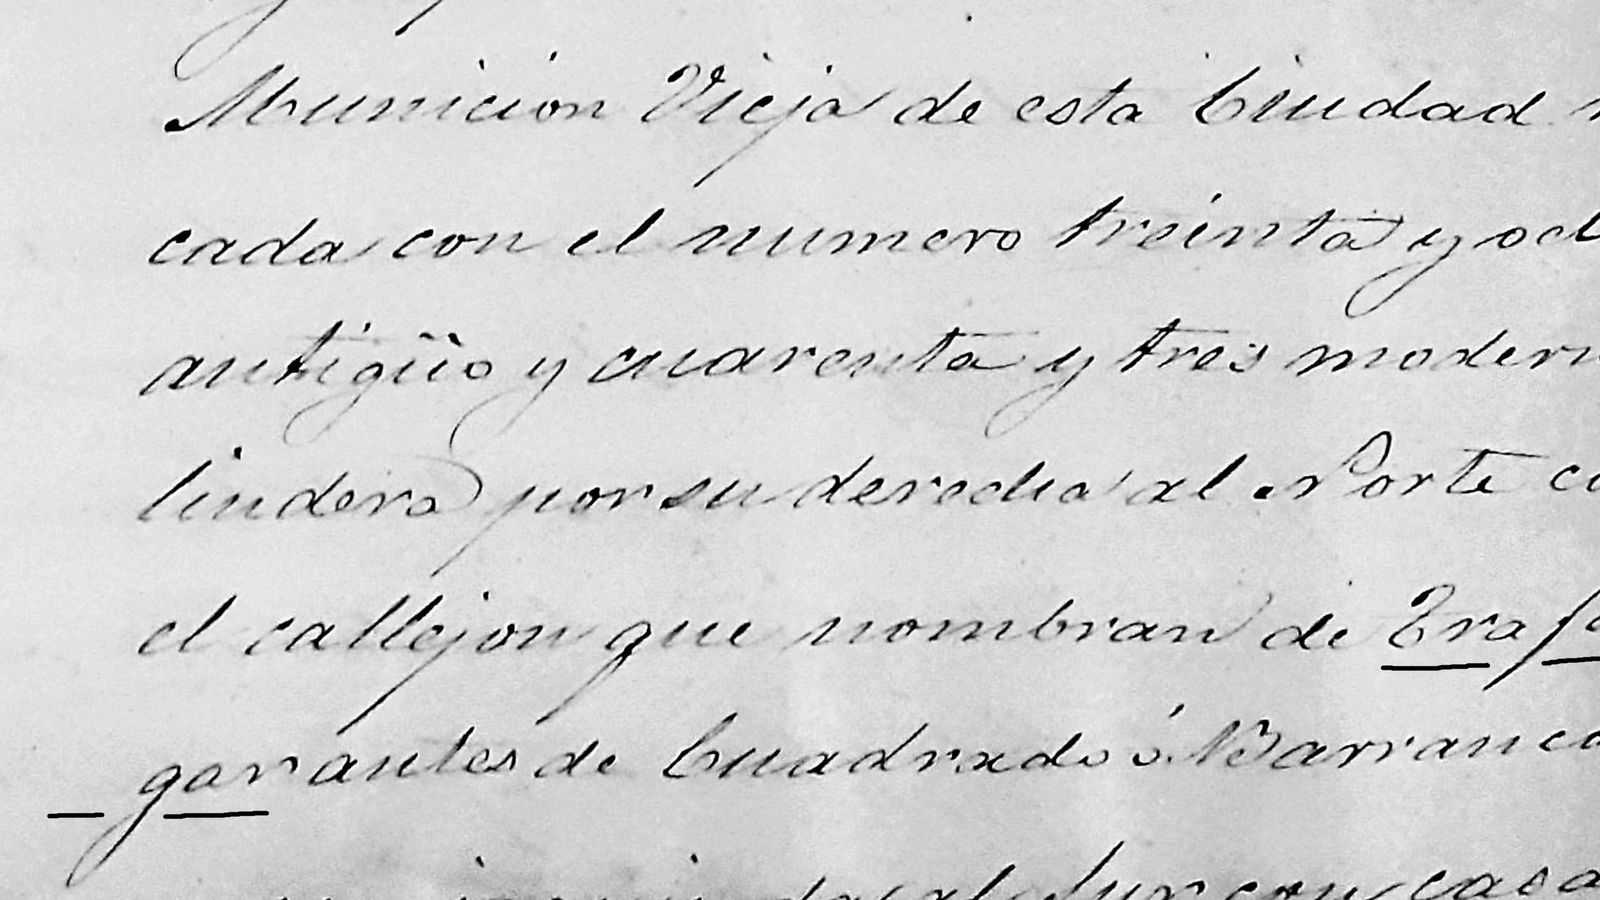 Municion Vieja de esta Ciudad
cada con el numero treinta y oct
antigüo y cuarenta y tres modern
lindera por su derecha al Norte co
el callejon que nombran de Trafal
gar antes de Cuadrado ó Barranca
al Sur con casa